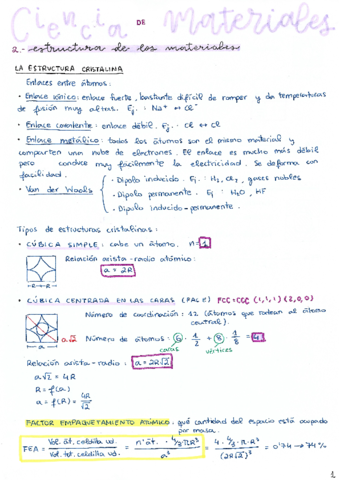 Ciencia DE Materiales
2.- estructura de los materiales
LA ESTRUCTURA CRISTALINA
Enlaces entre átomos:
• Enlace iónico: enlace fuerte, bastante difícil de romper y da temperaturas
de fusión muy altas. Ej.: Na⁺ ↔ Cl⁻
• Enlace covalente: enlace débil. Ej.: Cl ↔ Cl
• Enlace metálico: todos los átomos son el mismo material y
comparten una nube de electrones. El enlace es mucho más débil
pero conduce muy fácilmente la electricidad. Se deforma con
facilidad.
• Van der Waals
- Dipolo inducido. Ej.: H₂, CL₂, gases nobles
- Dipolo permanente. Ej: H₂O, HF
- Dipolo inducido-permanente.
Tipos de estructuras cristalinas:
• CÚBICA SIMPLE: cabe un átomo. n=1
Relación arista-radio atómico:
a = 2R
←R→←R→
• CÚBICA CENTRADA EN LAS CARAS FCC (1,1,1) (2,0,0)
Número de coordinación: 12 (átomos que rodean al átomo
central).
a√2
Número de átomos: 6 · 1/2 + 8/8 = 4
caras vértices
Relación arista-radio: a = 2R√2
a√2 = 4R
R = f(a)
a = f(R) = 4R/√2
FACTOR EMPAQUETAMIENTO ATÓMICO: qué cantidad del espacio está ocupado
por masa.
FEA = Vol. át. celdilla ud. / Vol. tot. celdilla ud. = nº át. · 4/3 πR³ / a³ = 4 · 4/3 · π · R³ / (2R√2)³ = 0'74 → 74%
1